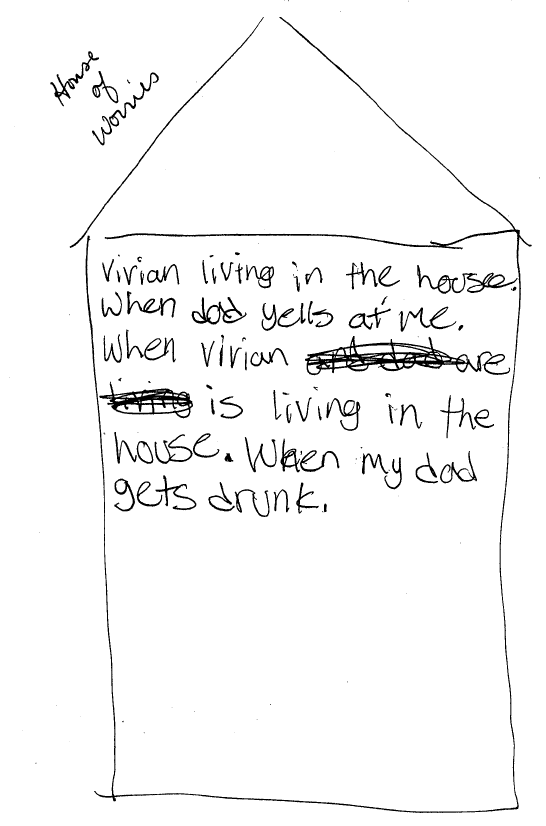 House
of
Worries
Vivian living in the house.
When dad yells at me.
When Vivian and dad are
living is living in the
house. When my dad
gets drunk.